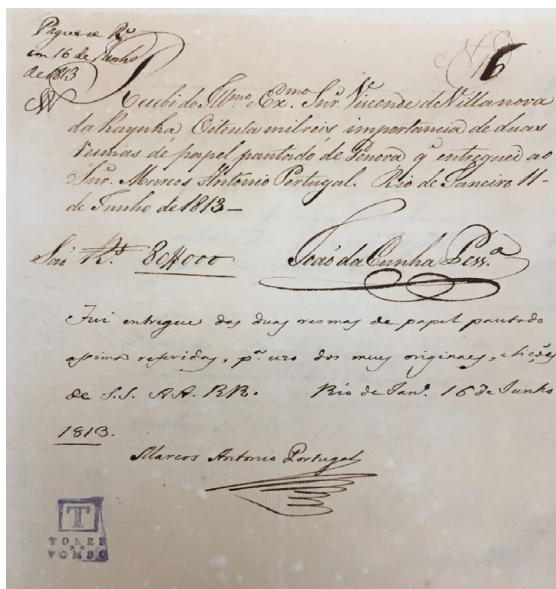 Pague se R.
em 16 de Junho
de 1813
N 6
Recebi do Illmo e Exmo Snr. Visconde de Villa nova
da Raynha Oitenta mil reis importancia de duas
Resmas de papel pautado de Genova q. entreguei ao
Snr. Marcos Antonio Portugal. Rio de Janeiro 11-
de Junho de 1813-
São Rs. 80$000 João da Cunha Pess.a
Fui entregue das duas resmas de papel pautado
assima referidas, p.a uzo dos meus originaes, e lições
de S.S. AA. RR. Rio de Jan.o 16 de Junho
1813.
Marcos Antonio Portugal
T
TORRE
DO
TOMBO